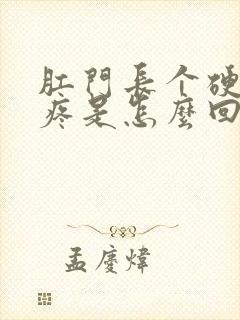 肛門長个硬
疼是怎麼回
孟慶煒